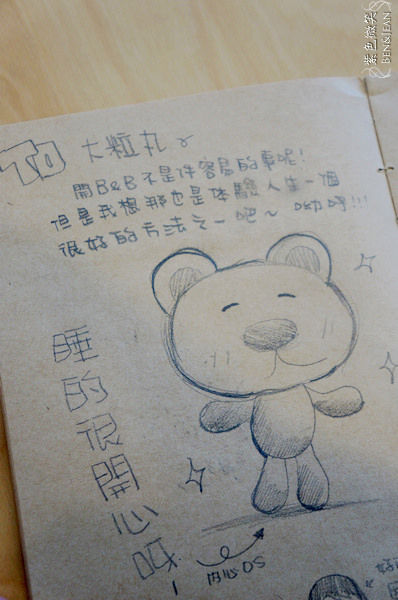 TO 大粒丸~
開B&B不是件容易的事呢!
但是我想那也是体驗人生一個
很好的方法之一吧~ 呦呼!!!
睡的很開心呀!
內心OS
好
紫色微笑
BEN&JEAN